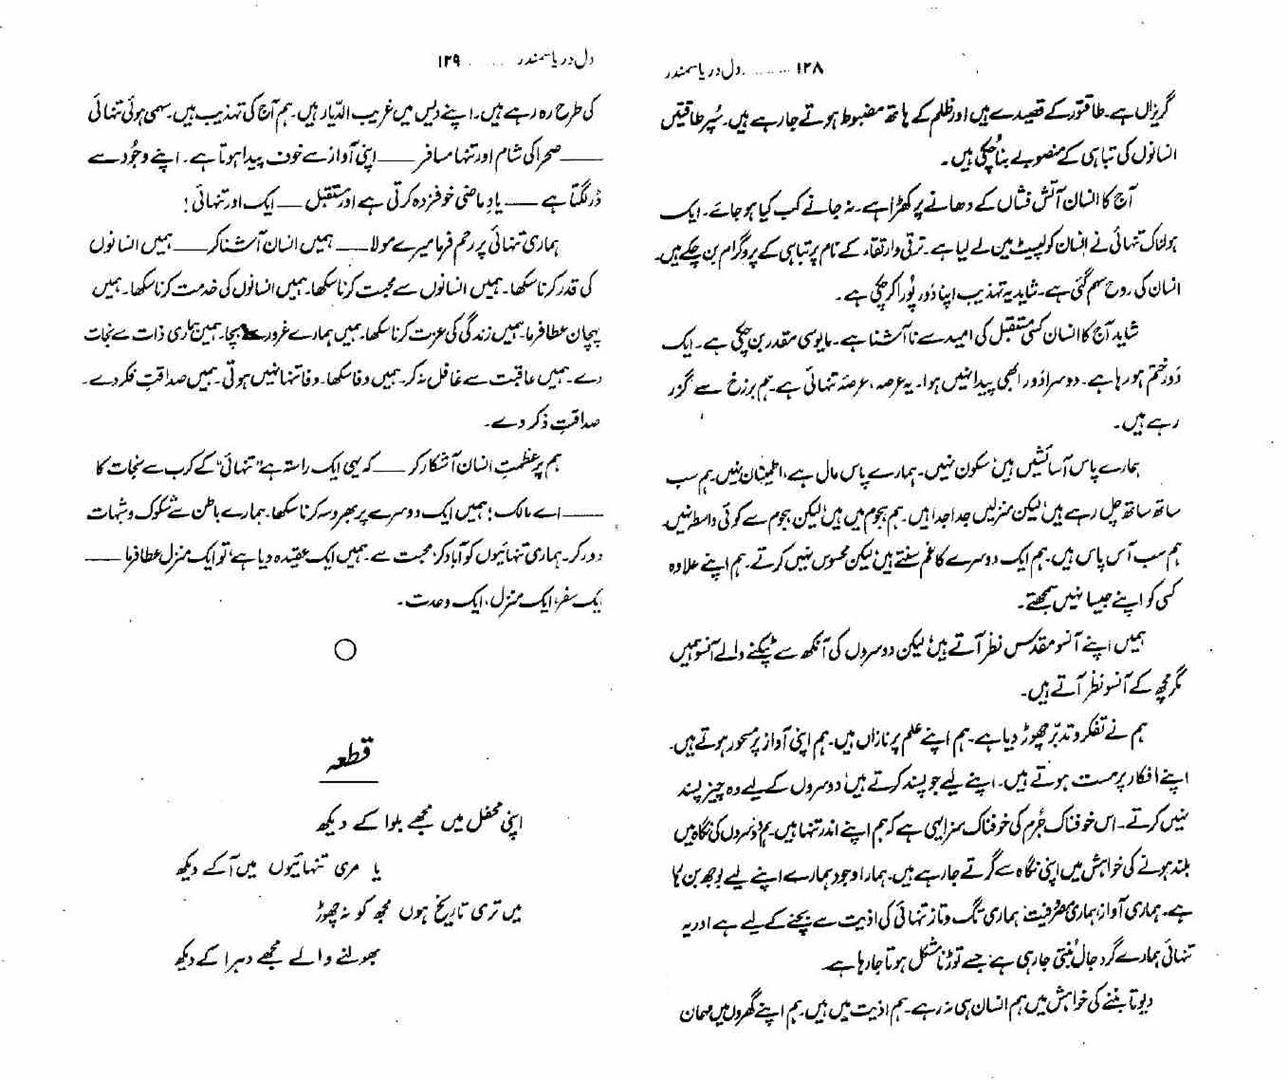 ۱۲۸ ......... دل دریا سمندر
گریزاں ہے۔ طاقتور کے قصیدے ہیں اور ظلم کے ہاتھ مضبوط ہوتے جا رہے ہیں۔ سُپر طاقتیں
انسانوں کی تباہی کے منصوبے بنا چکی ہیں۔
آج کا انسان آتش فشاں کے دھانے پر کھڑا ہے۔ نہ جانے کب کیا ہو جائے۔ ایک
ہولناک تنہائی نے انسان کو لپیٹ میں لے لیا ہے۔ ترقی و ارتقاء کے نام پر تباہی کے پروگرام بن چکے ہیں۔
انسان کی روح سہم گئی ہے۔ شاید یہ تہذیب اپنا دَور پُورا کر چکی ہے۔
شاید آج کا انسان کسی مستقبل کی امید سے ناآشنا ہے۔ مایوسی مقدر بن چکی ہے۔ ایک
دَور ختم ہو رہا ہے۔ دوسرا دَور ابھی پیدا نہیں ہوا۔ یہ عرصہ، عرصۂ تنہائی ہے۔ ہم برزخ سے گزر
رہے ہیں۔
ہمارے پاس آسائشیں ہیں سکون نہیں۔ ہمارے پاس مال ہے، اطمینان نہیں۔ ہم سب
ساتھ ساتھ چل رہے ہیں لیکن منزلیں جدا جدا ہیں۔ ہم ہجوم میں ہیں لیکن ہجوم سے کوئی واسطہ نہیں
ہم سب آس پاس ہیں۔ ہم ایک دوسرے کا غم سنتے ہیں لیکن محسوس نہیں کرتے۔ ہم اپنے علاوہ
کسی کو اپنے جیسا نہیں سمجھتے۔
ہمیں اپنے آنسو مقدس نظر آتے ہیں لیکن دوسروں کی آنکھ سے ٹپکنے والے آنسو ہمیں
مگرمچھ کے آنسو نظر آتے ہیں۔
ہم نے تفکر و تدبّر چھوڑ دیا ہے۔ ہم اپنے علم پر نازاں ہیں۔ ہم اپنی آواز پر مسحور ہوتے ہیں۔
اپنے افکار پر مست ہوتے ہیں۔ اپنے لیے جو پسند کرتے ہیں دوسروں کے لیے وہ چیز پسند
نہیں کرتے۔ اس خوفناک جُرم کی خوفناک سزا یہی ہے کہ ہم اپنے اندر تنہا ہیں۔ ہم دوسروں کی نگاہ میں
بلند ہونے کی خواہش میں اپنی نگاہ سے گرتے جا رہے ہیں۔ ہمارا وجود ہمارے اپنے لیے بوجھ بن گیا
ہے۔ ہماری آواز ہماری مصروفیت ہماری تگ و تاز تنہائی کی اذیت سے بچنے کے لیے ہے اور یہ
تنہائی ہمارے گرد جال بُنتی جا رہی ہے جسے توڑنا مشکل ہوتا جا رہا ہے۔
دیوتا بننے کی خواہش میں ہم انسان ہی نہ رہے۔ ہم اذیت میں ہیں۔ ہم اپنے گھروں میں مہمان
دل دریا سمندر ........ ۱۲۹
کی طرح رہ رہے ہیں۔ اپنے دیس میں غریب الدّیار ہیں۔ ہم آج کی تہذیب ہیں۔ سہمی ہوئی تنہائی
—— صحرا کی شام اور تنہا مسافر —— اپنی آواز سے خوف پیدا ہوتا ہے۔ اپنے وجُود سے
ڈر لگتا ہے —— یادِ ماضی خوفزدہ کرتی ہے اور مستقبل —— ایک اور تنہائی!
ہماری تنہائی پر رحم فرما میرے مولا —— ہمیں انسان آشنا کر —— ہمیں انسانوں
کی قدر کرنا سکھا۔ ہمیں انسانوں سے محبت کرنا سکھا۔ ہمیں انسانوں کی خدمت کرنا سکھا۔ ہمیں
پہچان عطا فرما۔ ہمیں زندگی کی عزت کرنا سکھا۔ ہمیں ہمارے غرور سے بچا۔ ہمیں ہماری ذات سے نجات
دے۔ ہمیں عاقبت سے غافل نہ کر۔ ہمیں وفا سکھا۔ وفا تنہا نہیں ہوتی۔ ہمیں صداقتِ فکر دے۔
صداقتِ ذکر دے۔
ہم پر عظمتِ انسان آشکار کر —— کہ یہی ایک راستہ ہے "تنہائی" کے کرب سے نجات کا
—— اے مالک! ہمیں ایک دوسرے پر بھروسہ کرنا سکھا۔ ہمارے باطن سے شکوک و شبہات
دور کر۔ ہماری تنہائیوں کو آباد کر، محبت سے۔ ہمیں ایک عقیدہ دیا ہے، تو ایک منزل عطا فرما ——
یک سفر، ایک منزل، ایک وحدت۔
قطعہ
اپنی محفل میں مجھے بلوا کے دیکھ
یا مری تنہائیوں میں آ کے دیکھ
میں تری تاریخ ہوں مجھ کو نہ چھوڑ
بھولنے والے مجھے دہرا کے دیکھ